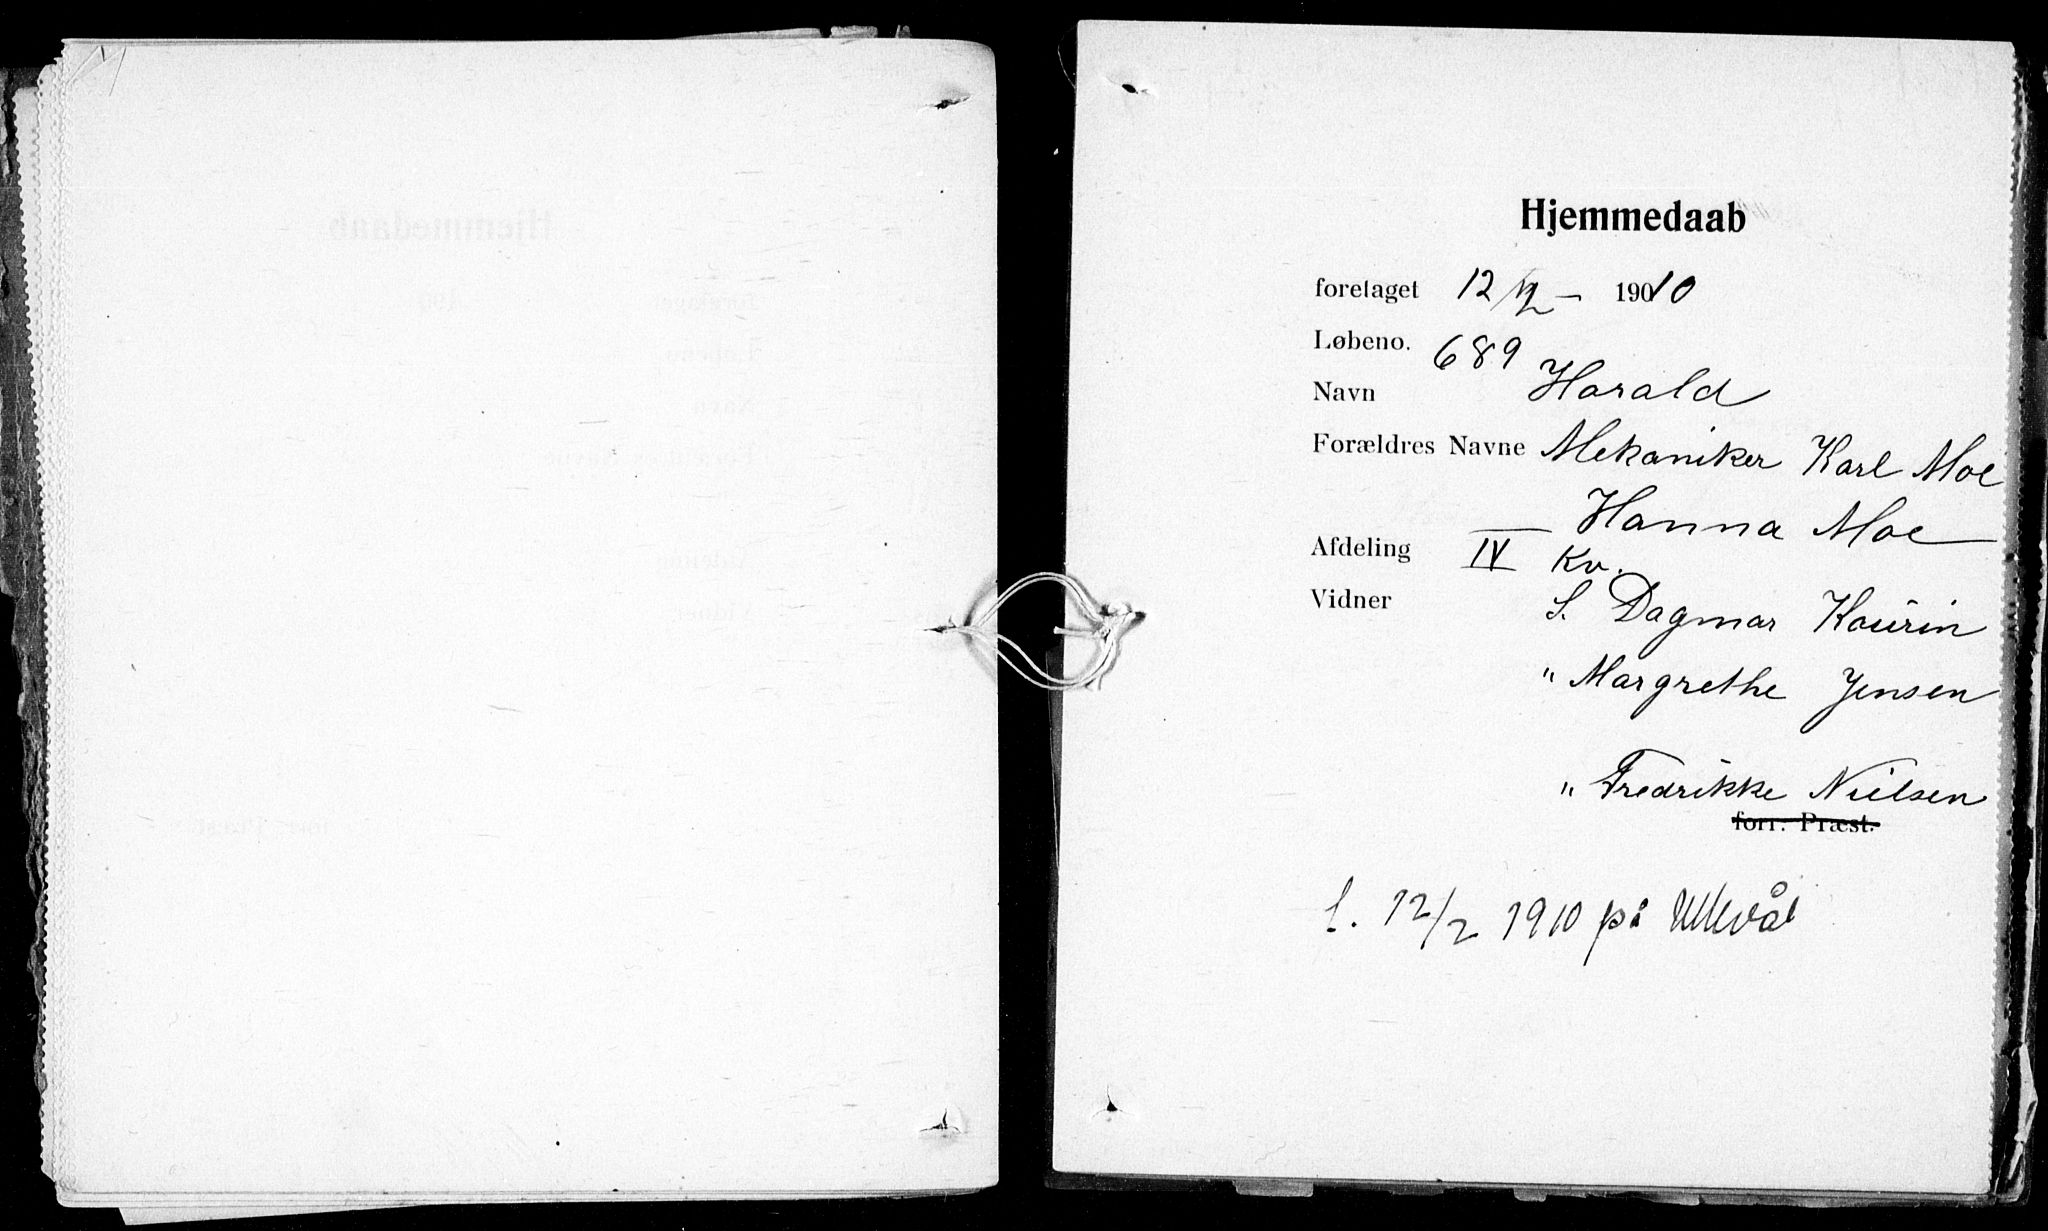 Hjemmedaab
foretaget 12/2 - 19010
Løbeno. 689
Navn Harald
Forældres Navne Mekaniker Karl Moe
Hanna Moe
Afdeling IV Kv.
Vidner S. Dagmar Kaurin
" Margrethe Jensen
" Fredrikke Nielsen
forr. Præst.
f. 12/2 1910 på Ullevål